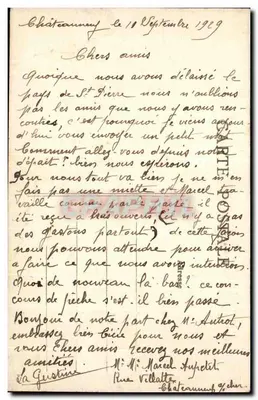 Châteauneuf le 18 Septembre 1929
Chers amis
Quoique nous avons délaissé le
pays de St Pierre nous n'oublions
pas les amis que nous y avons ren-
contrés, c'est pourquoi je viens aujour
d'hui vous envoyer un petit mot
Comment allez vous depuis notre
départ? bien nous espérons.
Pour nous tout va bien je ne m'en
fais pas une miette et Marcel tra-
vaille comme sans
il
été reçu à bras ouverts (il n'y a pas
des gastons partout) de cette façon
nous pouvons attendre pour arriver
à faire ce que nous avons intention.
Quoi de nouveau là bas? ce con-
cours de pêche s'est-il bien passé
Bonjour de notre part chez Mr
embrassez bien pour nous et
vous Chers amis recevez nos meilleurs
amitiés.
La Gerstine
Mr Me Marcel
Rue Villatte
Châteauneuf s/ cher
CARTE POSTALE
Adresse